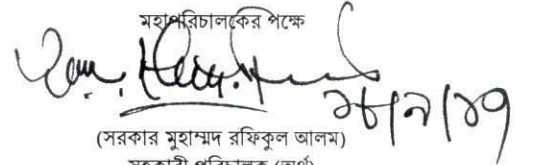 মহাপরিচালকের পক্ষে
(সরকার মুহাম্মদ রফিকুল আলম)
সহকারী পরিচালক (অর্থ)